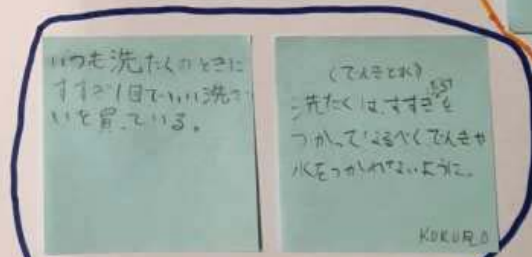 いつも洗たくのときに
すすぎ1回でいい洗ざ
いを買っている。
(でんきとめ)
洗たくは、すすぎを
つかってなるべくでんきや
水をつかわないように。